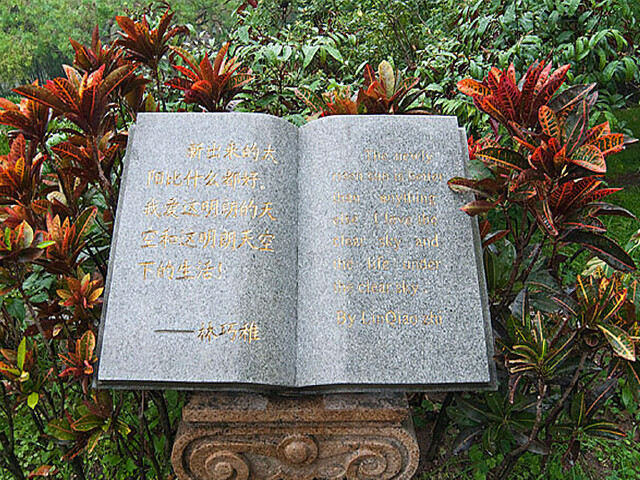 新出来的太
阳比什么都好。
我爱这明朗的天
空和这明朗天空
下的生活!
——林巧稚
The newly
risen sun is better
than anything
else. I love the
clear sky and
the life under
the clear sky.
By Lin Qiaozhi